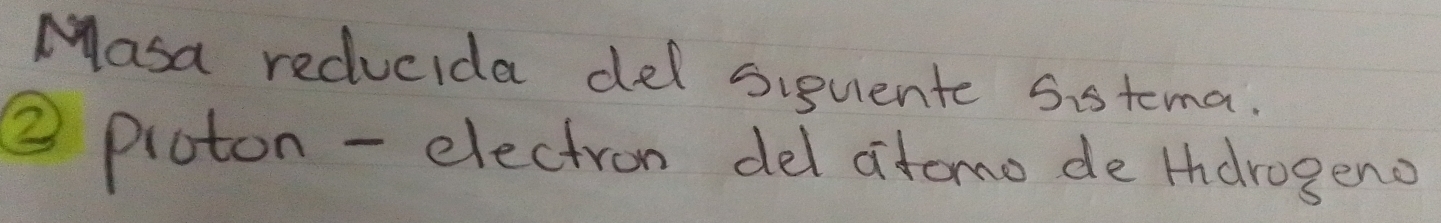 Masa reducida del siguiente sistema.
② proton - electron del átomo de Hidrogeno